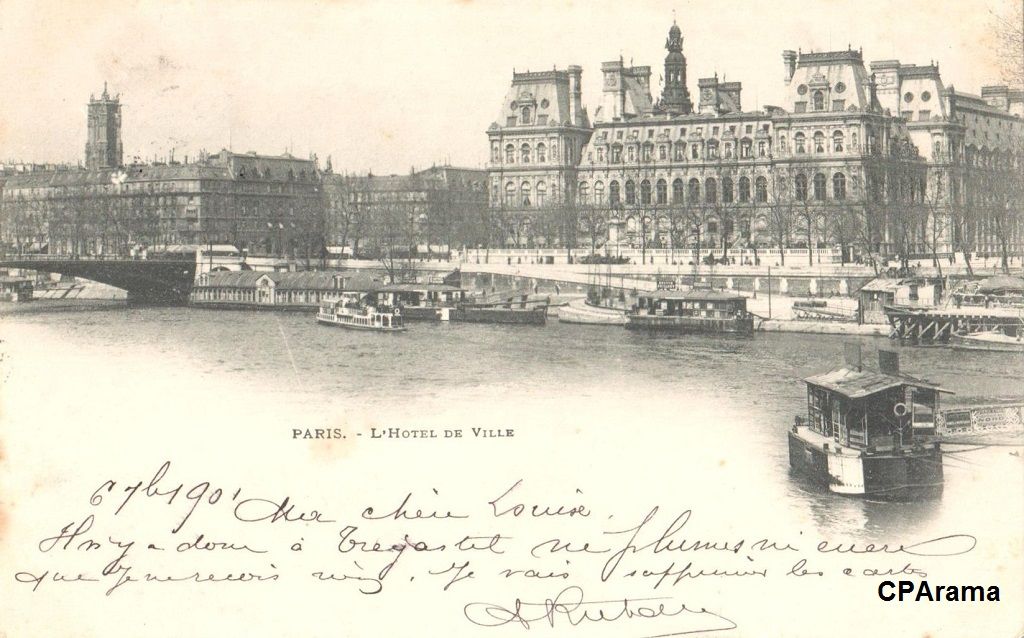 PARIS. - L'HOTEL DE VILLE
6 7b 1901 Ma chère Louise.
Il n'y a donc à Tregastel ni plumes ni encre
que je ne reçois rien. Je vais supprimer les cartes
CPArama